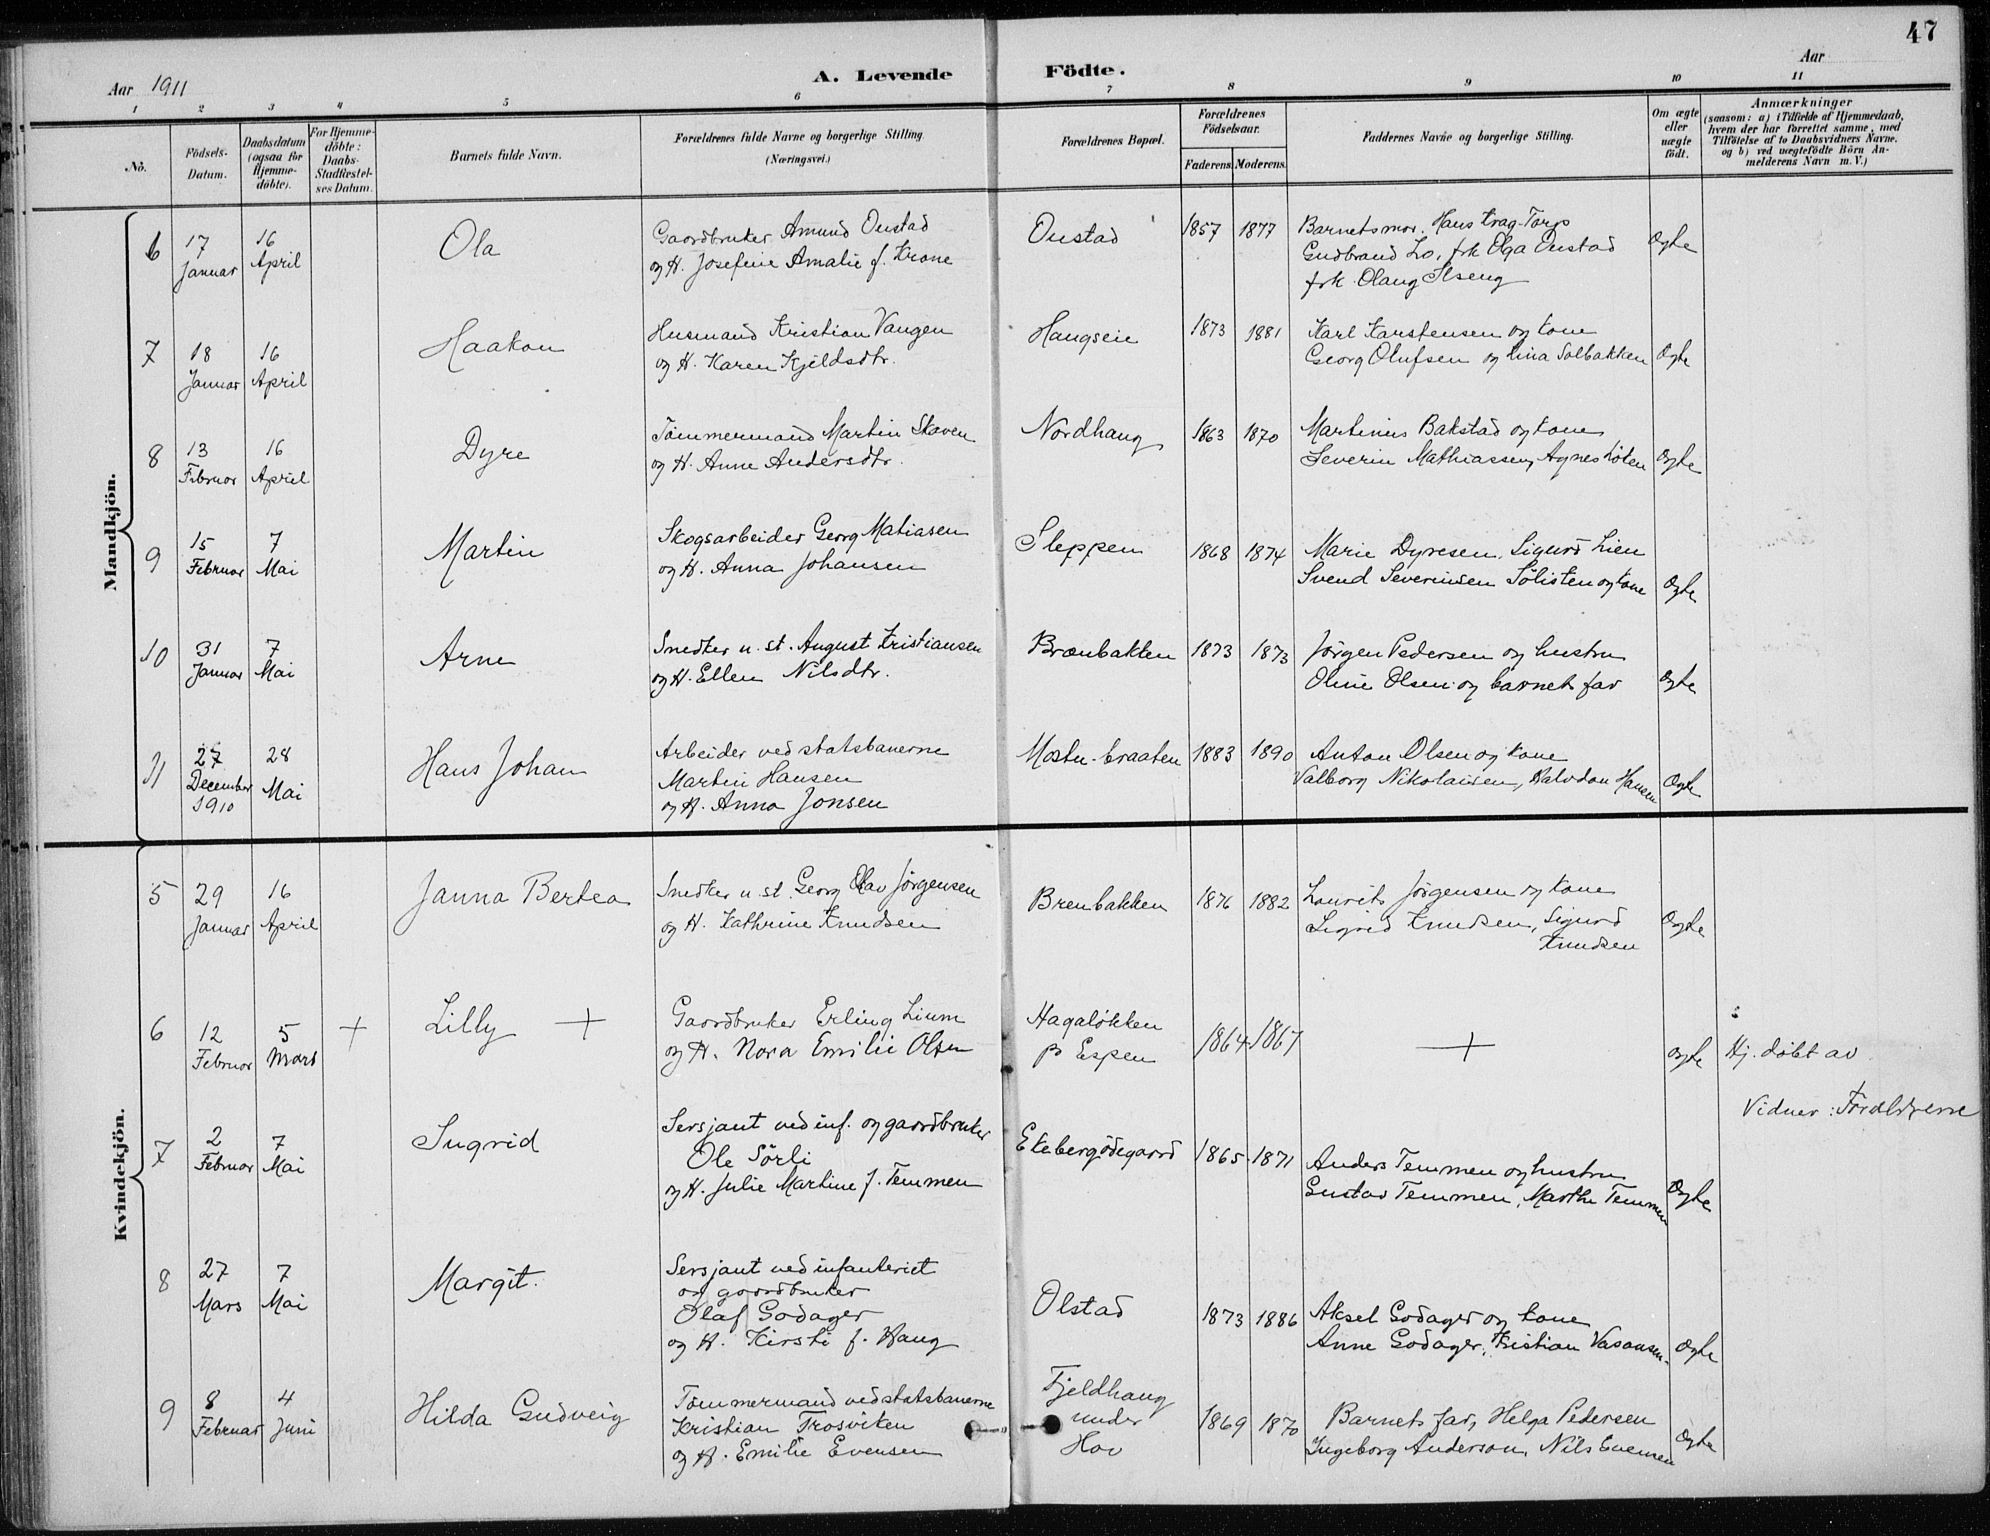 47
Aar 1911
A. Levende Födte.
Aar
1 2 3 4 5 6 7 8 9 10 11
No.
Födsels-Datum.
Daabsdatum (ogsaa for Hjemme-döbte).
For Hjemme-döbte: Daabs-Stadfæstel-ses Datum.
Barnets fulde Navn.
Forældrenes fulde Navne og borgerlige Stilling. (Næringsvei.)
Forældrenes Bopæl.
Forældrenes Födselsaar.
Faderens. Moderens.
Faddernes Navne og borgerlige Stilling.
Om ægte eller uægte födt.
Anmærkninger (saasom: a) i Tilfælde af Hjemmedaab, hvem der har forrettet samme, med Tilföielse af to Daabsvidners Navne. og b) ved uægtefödte Börn An-melderens Navn m. V.)
Mandkjön.
6 17 Januar 16 April
Ola
Gaardbruker Amund Oustad
og H. Josefine Amalie f. Krone
Oustad
1857 1877
Barnets mor. Hans Krag-Torp
Gudbrand Lo, frk Olga Oustad
frk. Olaug Ilseng
Ægte
7 18 Januar 16 April
Haakon
Husmand Kristian Vangen
og H. Karen Kjeldsdtr.
Haugseie
1873 1881
Karl Karstensen og kone
Georg Olufsen og Lina Solbakken
Ægte
8 13 Februar 16 April
Dyre
Tømmermand Martin Skaven
og H. Anne Andersdtr.
Nordhaug
1863 1870
Martinius Bakstad og kone
Severin Mathiassen, Agnes Løten
Ægte
9 15 Februar 7 Mai
Martin
Skogsarbeider Georg Matiasen
og H. Anna Johansen
Sleppen
1868 1874
Marie Dyresen, Sigurd Lien
Svend Severinsen Sølisten og kone
Ægte
10 31 Januar 7 Mai
Arne
Snedker u. st. August Kristiansen
og H. Ellen Nilsdtr.
Brænbakken
1873 1873
Jørgen Pedersen og hustru
Oline Olsen og barnets far
Ægte
11 27 December 1910 28 Mai
Hans Johan
Arbeider ved statsbanerne
Martin Hansen
og H. Anna Jonsen
Mostu-braaten
1883 1890
Anton Olsen og kone
Valborg Nikolaisen, Halvdan Hansen
Ægte
Kvindekjön.
5 29 Januar 16 April
Janna Bertea
Snedker u. st. Georg Olav Jørgensen
og H. Kathrine Knudsen
Brenbakken
1876 1882
Laurits Jørgensen og kone
Sigrid Knudsen, Sigurd
Knudsen
Ægte
6 12 Februar 5 Mars +
Lilly +
Gaardbruker Erling Lium
og H. Nora Emilie Olsen
Hagaløkken
p. Espen
1864 1867
+
ægte
Hj. døbt av
Vidner: Forældrene
7 2 Februar 7 Mai
Ingrid
Sersjant ved inf. og gaardbruker
Ole Sörli
og H. Julie Martine f. Temmen
Ekebergødegaard
1865 1871
Anders Temmen og hustru
Gustav Temmen, Marthe Temmen
Ægte
8 27 Mars 7 Mai
Margit.
Sersjant ved infanteriet
og gaardbruker
Olaf Godager
og H. Kirsti f. Haug
Olstad
1873 1886
Aksel Godager og kone
Anne Godager, Kristian Vasaasen
Ægte
9 8 Februar 4 Juni
Hilda Gudveig
Tømmermand ved statsbanerne
Kristian Trosviken
og H. Emilie Evensen
Fjeldhaug
under
Hov
1869 1870
Barnets far, Helga Pedersen
Ingeborg Anderson, Nils Evensen
Ægte